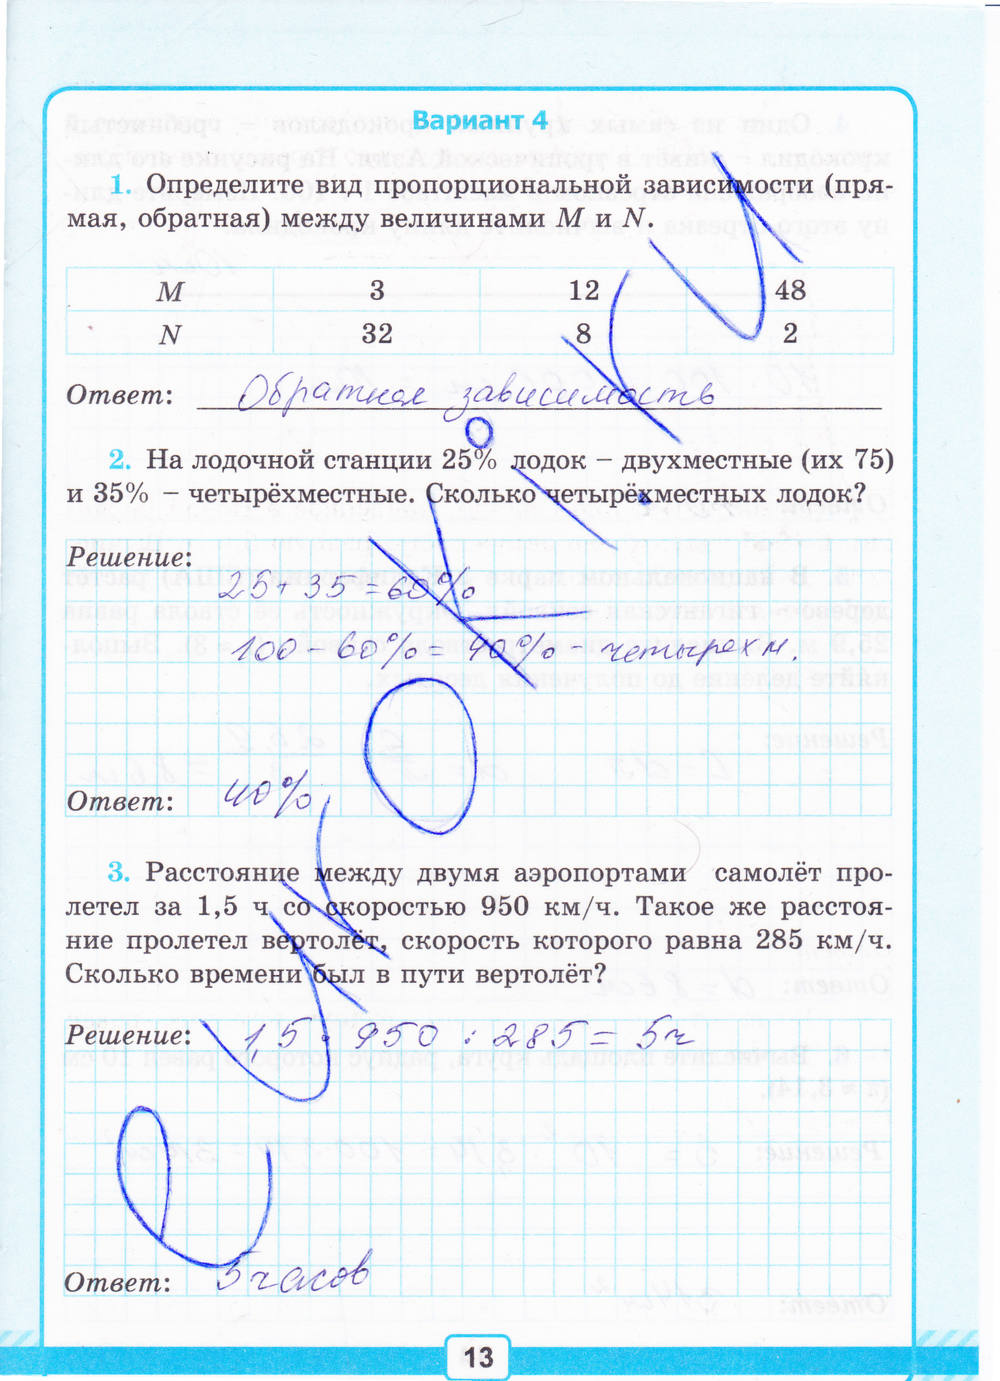 Вариант 4
1. Определите вид пропорциональной зависимости (пря-
мая, обратная) между величинами M и N.
M 3 12 48
N 32 8 2
Ответ: Обратная зависимость
2. На лодочной станции 25% лодок – двухместные (их 75)
и 35% – четырёхместные. Сколько четырёхместных лодок?
Решение:
25+35=60%
100-60%=40% - четырехм.
Ответ: 40%
3. Расстояние между двумя аэропортами самолёт про-
летел за 1,5 ч со скоростью 950 км/ч. Такое же расстоя-
ние пролетел вертолёт, скорость которого равна 285 км/ч.
Сколько времени был в пути вертолёт?
Решение: 15 · 950 : 285 = 5ч
Ответ: 5 часов
13